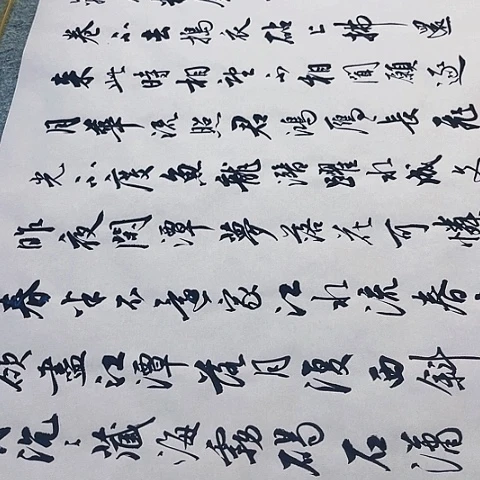 卷不去搗衣砧上拂還
来此時相望不相聞願逐
月華流照君鴻雁長飛
光不度魚龍潛躍水成文
昨夜閑潭夢落花可憐
春半不還家江水流春
欲盡江潭落月復西斜
沉沉藏海霧碣石瀟